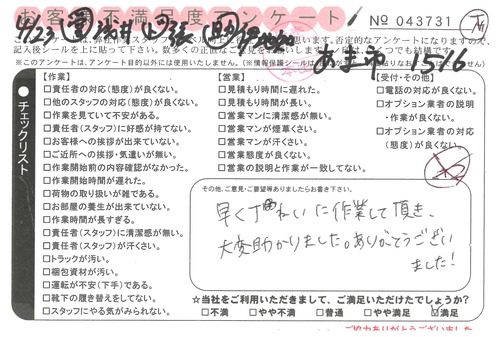 お客様不満足度アンケート
No 043731
4/23
あま市 1516
記入後シールを上に貼って下さい。
【作業】
□責任者の対応(態度)が良くない。
□他のスタッフの対応(態度)が良くない。
□作業を見ていて不安がある。
□責任者(スタッフ)に好感が持てない。
□お客様への挨拶が出来ていない。
□ご近所への挨拶・気遣いが無い。
□作業開始前の内容確認がなかった。
□作業開始時間が遅れた。
□荷物の取り扱いが雑である。
□お部屋の養生が出来ていない。
□作業時間が長すぎる。
□責任者(スタッフ)に清潔感が無い。
□責任者(スタッフ)が汗くさい。
□トラックが汚い。
□梱包資材が汚い。
□運転が不安(下手)である。
□靴下の履き替えをしてない。
□スタッフにやる気がみられない。
【営業】
□見積もり時間に遅れた。
□見積もり時間が長い。
□営業マンに清潔感が無い。
□営業マンが煙草くさい。
□営業マンが汗くさい。
□営業態度が良くない。
□営業の説明と作業が一致してない。
【受付・その他】
□電話の対応が良くない。
□オプション業者の説明
・作業が良くない。
□オプション業者の対応
(態度)が良くない。
チェックリスト
その他、ご意見・ご要望等ありましたらお書き下さい。
早くていねいに作業して頂き、
大変助かりました。ありがとうござい
ました!
☆当社をご利用いただきまして、ご満足いただけたでしょうか?
□不満 □やや不満 □普通 □やや満足 ☑満足
ご協力ありがとうございました